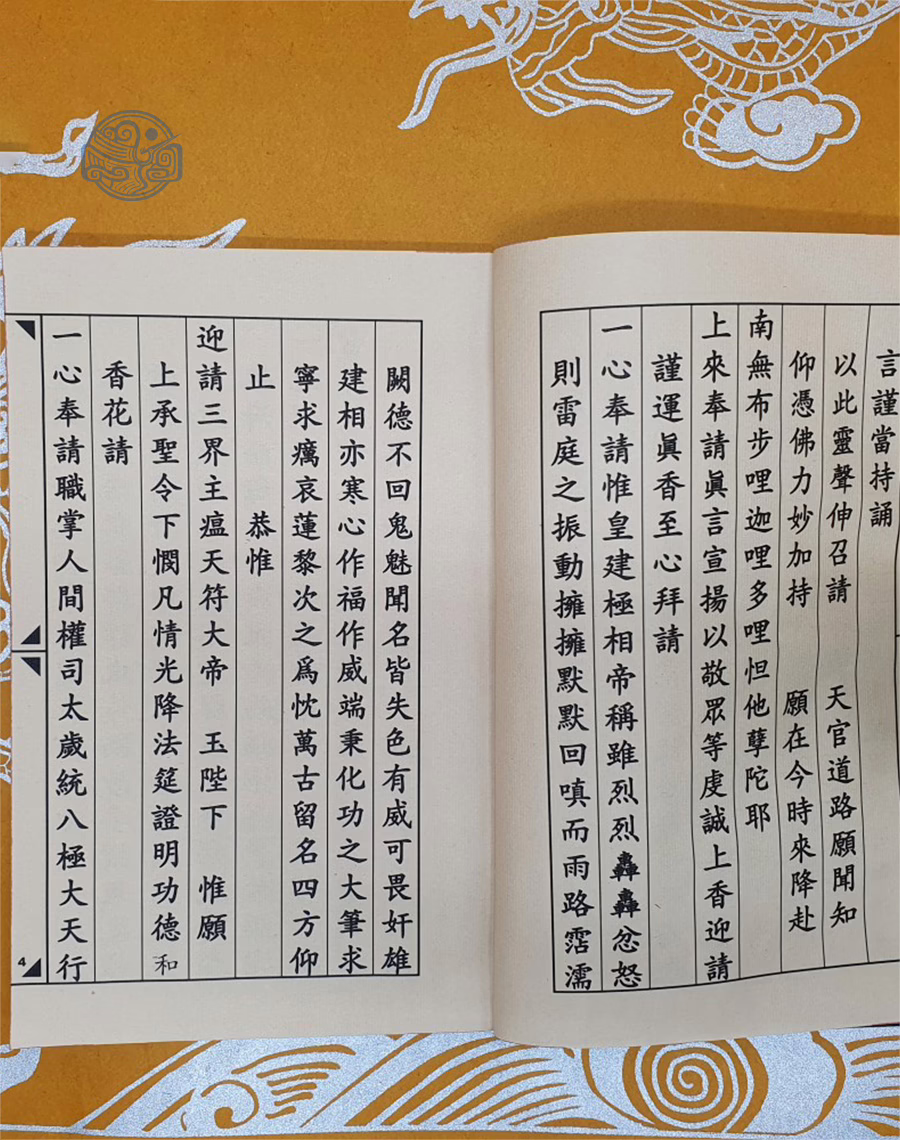 言謹當持誦
以此靈聲伸召請 天官道路願聞知
仰憑佛力妙加持 願在今時來降赴
南無布步哩迦哩多哩怛他孽陀耶
上來奉請眞言宣揚以敬眾等虔誠上香迎請
謹運眞香至心拜請
一心奉請惟皇建極相帝稱雖烈烈轟轟忿怒
則雷庭之振動擁擁默默回嗔而雨路霑濡
闕德不回鬼魅聞名皆失色有威可畏奸雄
建相亦寒心作福作威端秉化功之大筆求
寧求癘哀蓮黎次之爲忱萬古留名四方仰
止 恭惟
迎請三界主瘟天符大帝 玉陛下 惟願
上承聖令下憫凡情光降法筵證明功德和
香花請
一心奉請職掌人間權司太歲統八極大天行
4